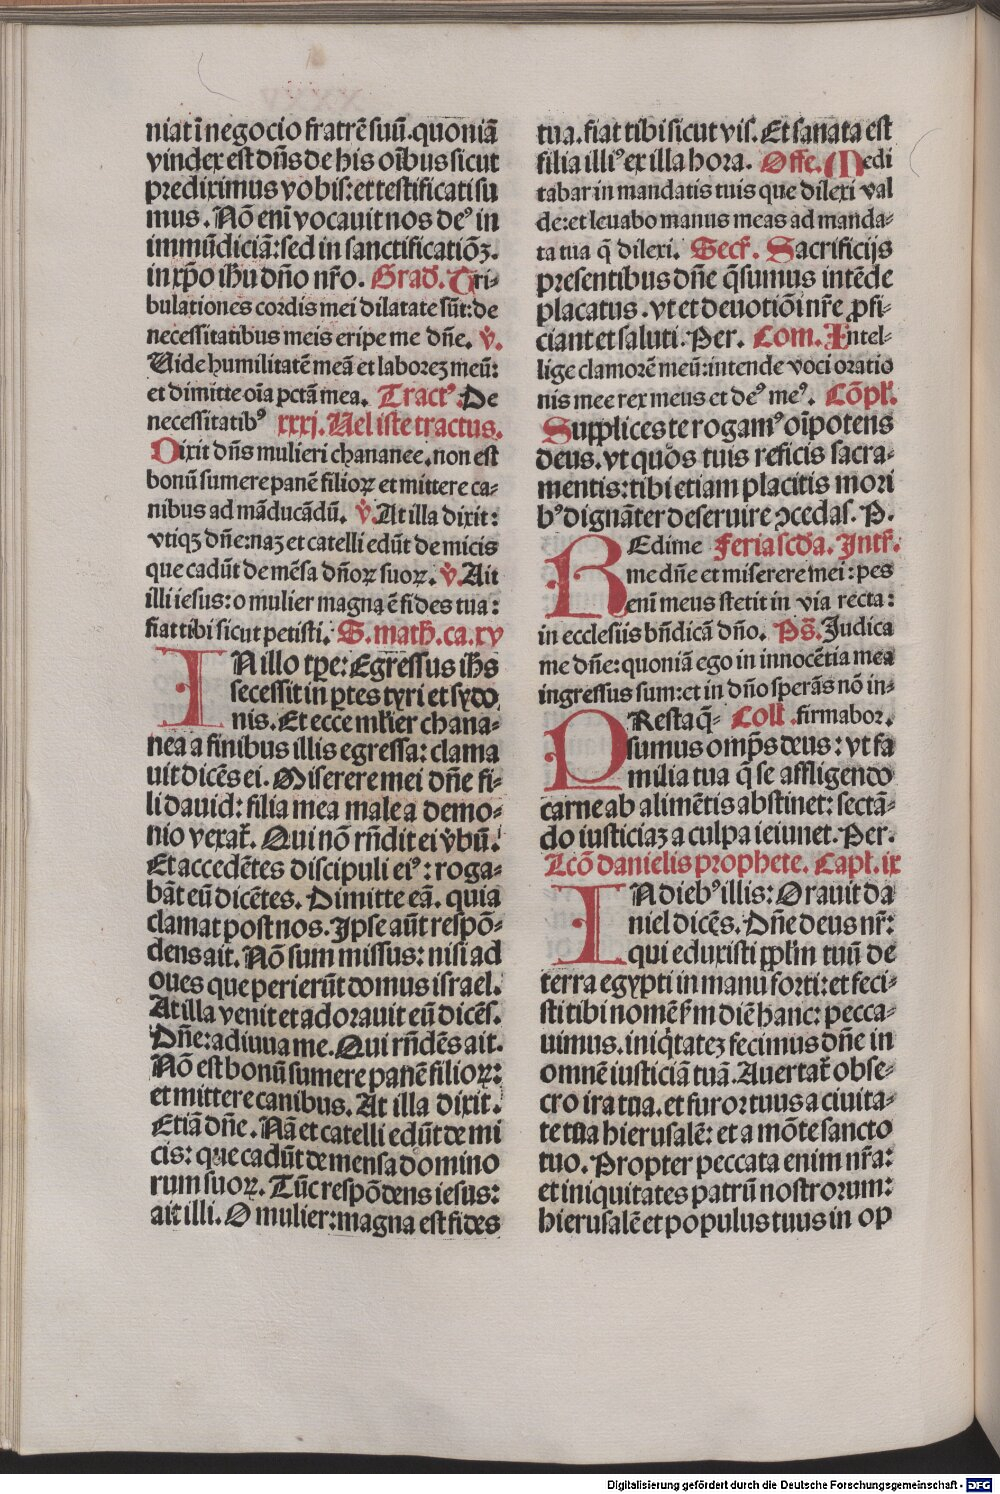 niat ī negocio fratrē suū. quoniā
vindex est dn̄s de his oībus sicut
prediximus vobis: et testificati su
mus. Nō enī vocauit nos deꝰ in
immūdiciā: sed in sanctificatiōꝫ.
in xp̄o ihu dn̄o nr̄o. Grad̄. Tri-
bulationes cordis mei dilatate sūt: de
necessitatibus meis eripe me dn̄e. v̄.
Uide humilitatē meā et laboreꝫ meū:
et dimitte oīa pctā mea. Tractꝰ. De
necessitatibꝰ xxxj. Uel iste tractus.
Dixit dn̄s mulieri chananee. non est
bonū sumere panē filioꝝ et mittere ca-
nibus ad māducādū. v̄. At illa dixit:
vtiqꝫ dn̄e: naꝫ et catelli edūt de micis
que cadūt de mēsa dn̄oꝝ suoꝝ. v̄. Ait
illi iesus: o mulier magna ē fides tua:
fiat tibi sicut petisti. S. math̄. ca. xv
IN illo tp̄e: Egressus ih̄s
secessit in ꝑtes tyri et sydo
nis. Et ecce ml̄ier chana-
nea a finibus illis egressa: clama
uit dicēs ei. Miserere mei dn̄e fi-
li dauid: filia mea male a demo-
nio vexat̄. Qui nō rn̄dit ei v̄bū.
Et accedētes discipuli eiꝰ: roga-
bāt eū dicētes. Dimitte eā. quia
clamat post nos. Ipse aūt respō-
dens ait. Nō sum missus: nisi ad
oues que perierūt domus israel.
At illa venit et adorauit eū dicēs.
Dn̄e: adiuua me. Qui rn̄dēs ait.
Nō est bonū sumere panē filioꝝ:
et mittere canibus. At illa dixit.
Etiā dn̄e. Nā et catelli edūt de mi
cis: que cadūt de mensa domino
rum suoꝝ. Tūc respōdens iesus:
ait illi. O mulier: magna est fides
tua. fiat tibi sicut vis. Et sanata est
filia illiꝰ ex illa hora. Offe. Medi
tabar in mandatis tuis que dilexi val
de: et leuabo manus meas ad manda-
ta tua q̄ dilexi. Secr̄. Sacrificijs
presentibus dn̄e q̄sumus intēde
placatus. vt et deuotiōi nr̄e ꝓfi-
ciant et saluti. Per. Com. Intel-
lige clamorē meū: intende voci oratio
nis mee rex meus et deꝰ meꝰ. Cōpl̄.
Supplices te rogamꝰ oīpotens
deus. vt quos tuis reficis sacra-
mentis: tibi etiam placitis mori
bꝰ dignāter deseruire ꝯcedas. P.
REdime Feria scd̄a. Intr̄.
me dn̄e et miserere mei: pes
enī meus stetit in via recta:
in ecclesiis bn̄dicā dn̄o. Ps̄. Judica
me dn̄e: quoniā ego in innocētia mea
ingressus sum: et in dn̄o sperās nō in-
PResta q̄- Coll̄. firmabor.
sumus omp̄s deus: vt fa
milia tua q̄ se affligendo
carne ab alimētis abstinet: sectā-
do iusticiaꝫ a culpa ieiunet. Per.
Lcō danielis prophete. Capl̄. ix
IN diebꝰ illis: Orauit da
niel dicēs. Dn̄e deus nr̄:
qui eduxisti ꝓpl̄m tuū de
terra egypti in manu forti: et feci-
sti tibi nomē ẜm diē hanc: pecca-
uimus. iniq̄tateꝫ fecimus dn̄e in
omnē iusticiā tuā. Auertat̄ obse-
cro ira tua. et furor tuus a ciuita-
te tua hierusalē: et a mōte sancto
tuo. Propter peccata enim nr̄a:
et iniquitates patrū nostrorum:
hierusalē et populus tuus in op
Digitalisierung gefördert durch die Deutsche Forschungsgemeinschaft - DFG